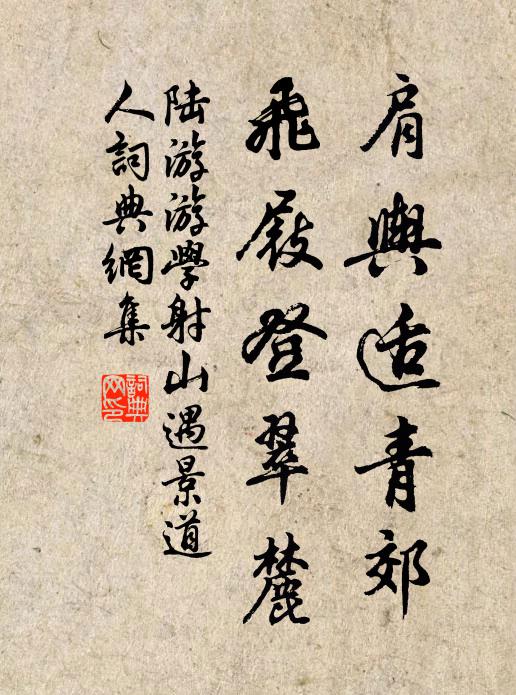 肩輿适青郊
飛屐登翠麓
陆游游學射山遇景道
人詞典網集
詞典
网印